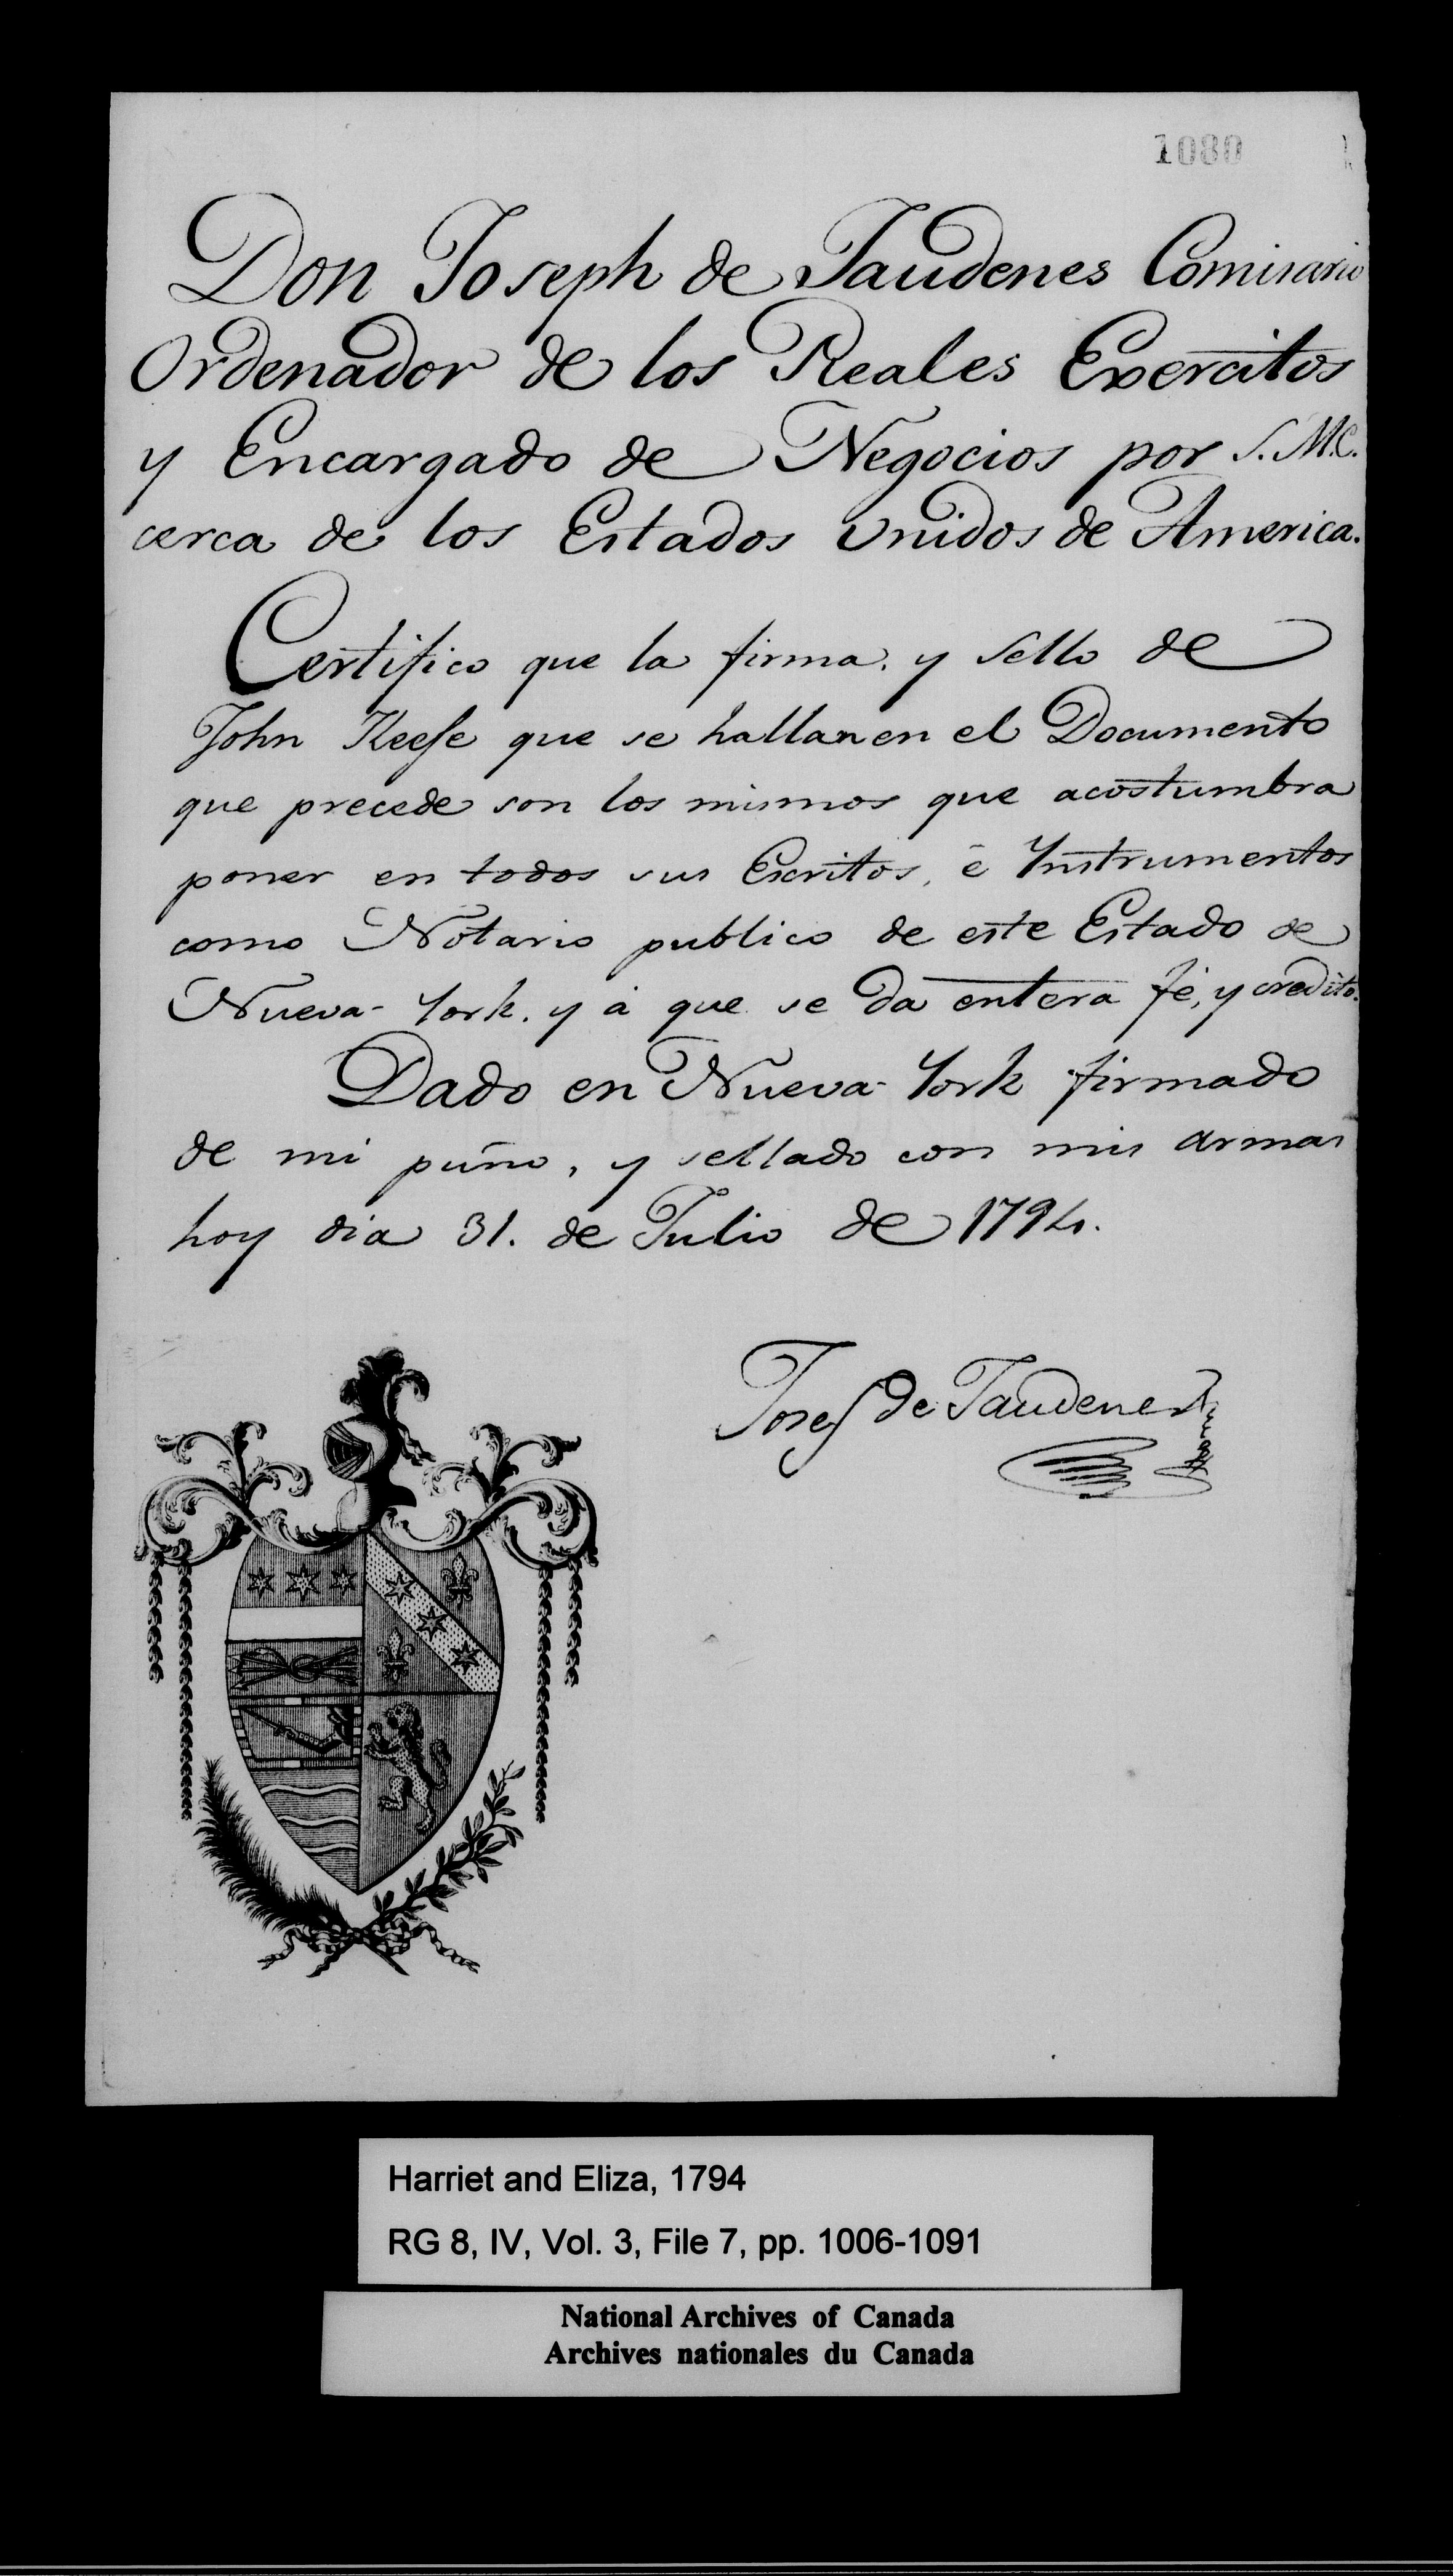 1080
Don Joseph de Jaudenes Comisario
Ordenador de los Reales Exercitos
y Encargado de Negocios por S.M.C.
cerca de los Estados Unidos de America.
Certifico que la firma, y sello de
John Keese que se hallan en el Documento
que precede son los mismos que acostumbra
poner en todos sus Escritos, é Ynstrumentos
como Notario publico de este Estado de
Nueva-York, y á que se da entera fé, y credito.
Dado en Nueva-York firmado
de mi puño, y sellado con mis armas
hoy dia 31. de Julio de 1794.
Josef de Jaudenes
Harriet and Eliza, 1794
RG 8, IV, Vol. 3, File 7, pp. 1006-1091
National Archives of Canada
Archives nationales du Canada